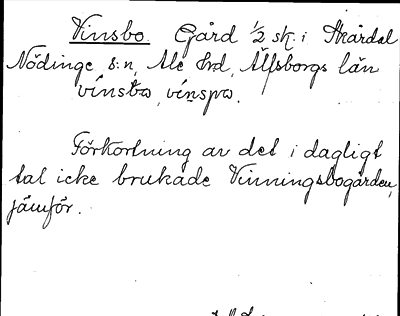 Vinsbo. Gård 1/2 sk. i Skårdal
Nödinge s:n, Ale hrd, Älfsborgs län
vínsbω, vínspω.
Förkortning av det i dagligt
tal icke brukade Vinningsbogården,
jämför.